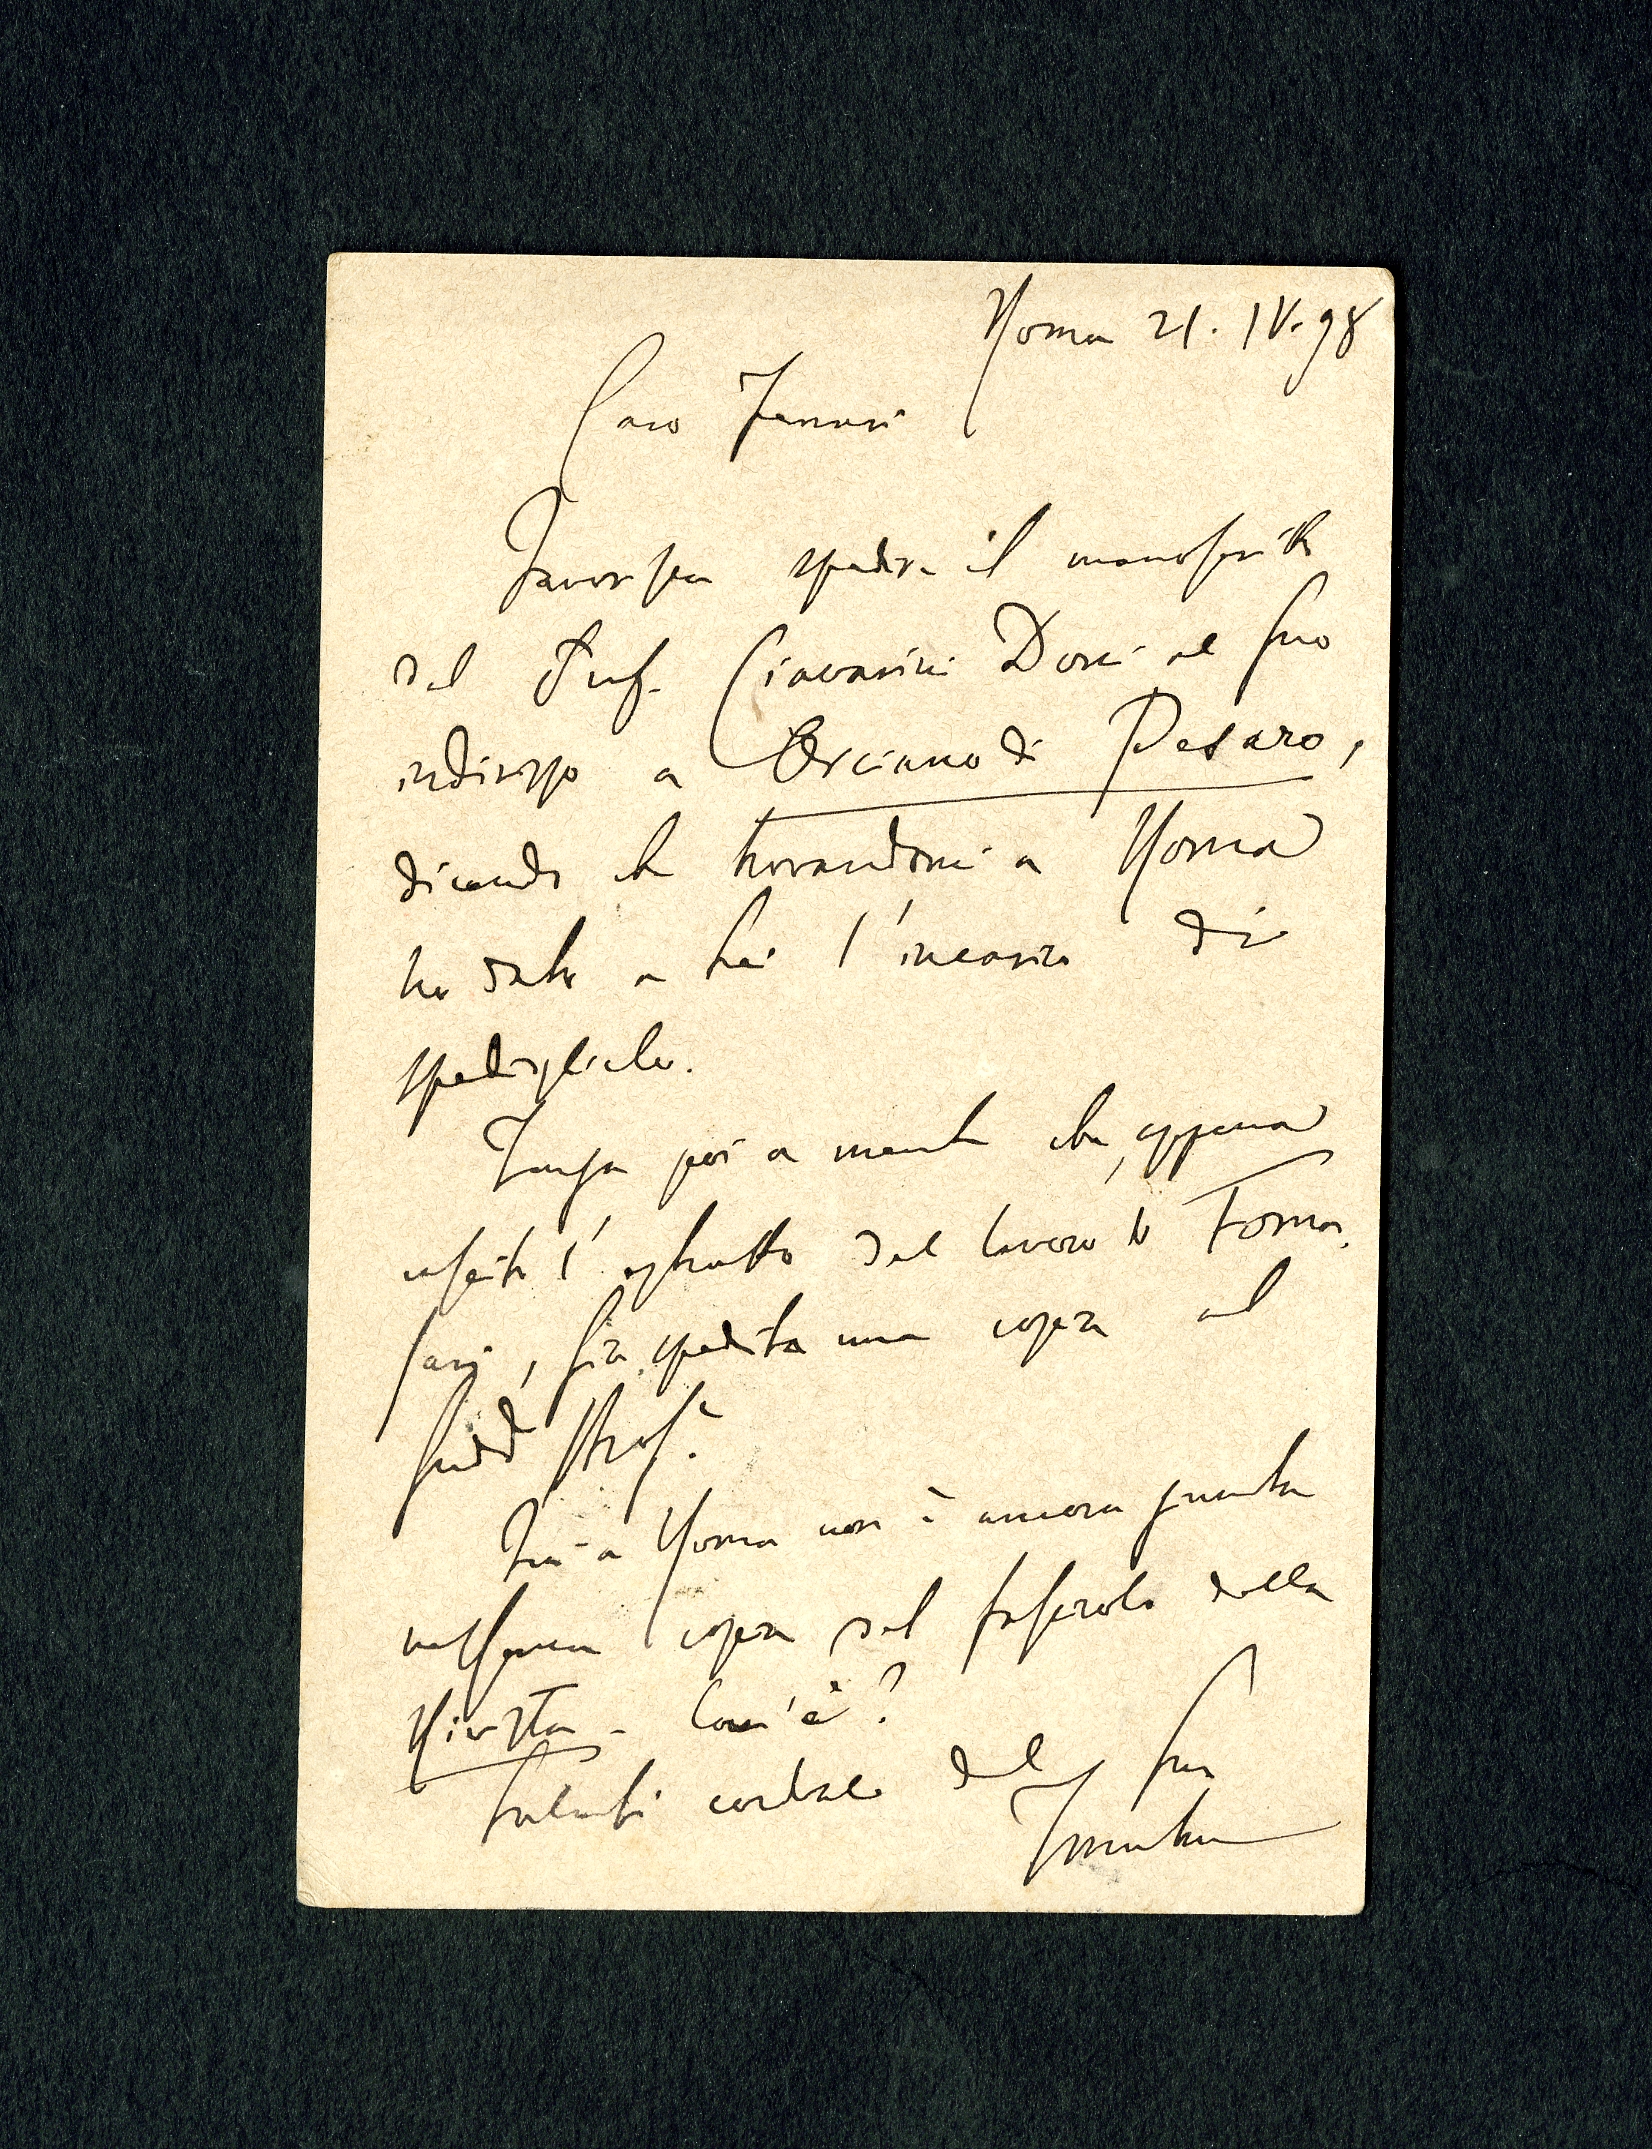 Roma 21. IV. 98
Caro Ferrari
Favorisca spedire il manoscritto
del Prof. Ciavarini Doni al suo
indirizzo a Orciano di Pesaro,
dicendo che trovandomi a Roma
ho dato a Lei l'incarico di
spedirglielo.
Tenga poi a mente che, appena
uscito l'estratto del lavoro to Forna
sari, sia spedita una copia al
sudd.º Prof.e
Qui a Roma non è ancora giunta
nessuna copia del fascicolo della
Rivista - Com'è?
Saluti cordiali dal suo